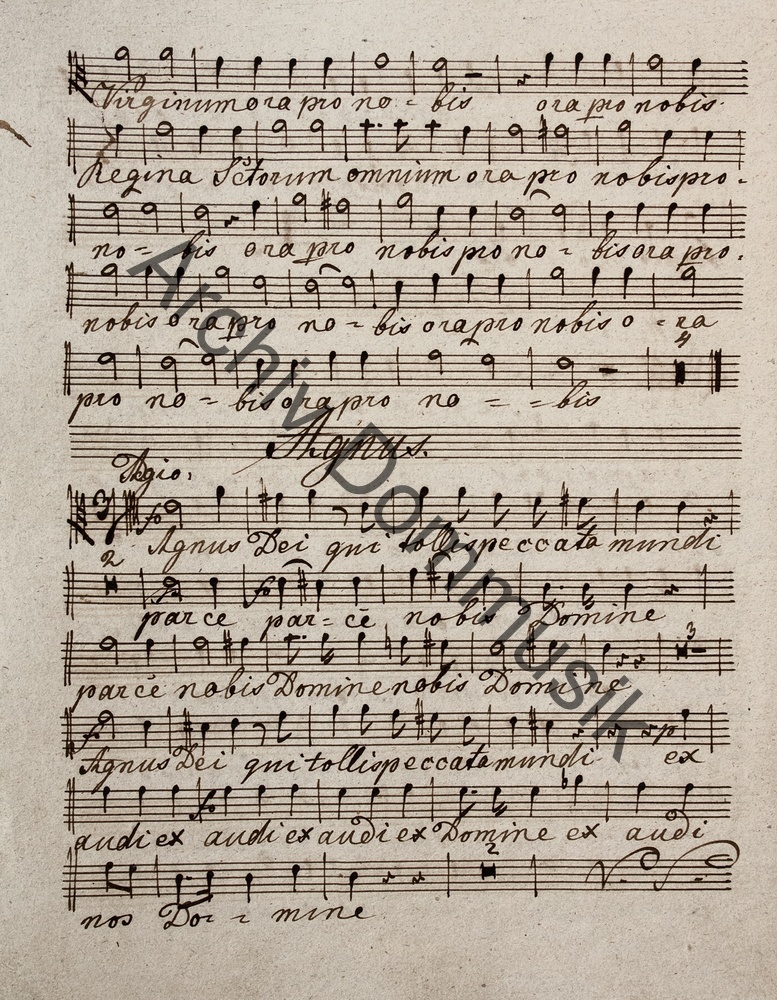 Virginum ora pro no - bis ora pro nobis.
Regina Sctorum omnium ora pro nobis pro -
no - bis ora pro nobis pro no - bis ora pro.
nobis ora pro no - bis ora pro nobis o - ra
4
pro no - bis ora pro no - - bis
Agnus.
Adgio.
3 fo
Agnus Dei qui tollis peccata mundi
2 fo
parce par - ce nobis Domine
3
parce nobis Domine nobis Domine
fo p
Agnus Dei qui tollis peccata mundi ex
fo
audi ex audi ex audi ex Domine ex audi
2
nos Do - - mine
Archiv Dommusik